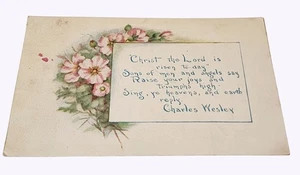 "Christ the Lord is
risen to-day"
Sons of men and angels say
Raise your joys and
triumphs high
Sing, ye heavens, and earth
reply.
Charles Wesley